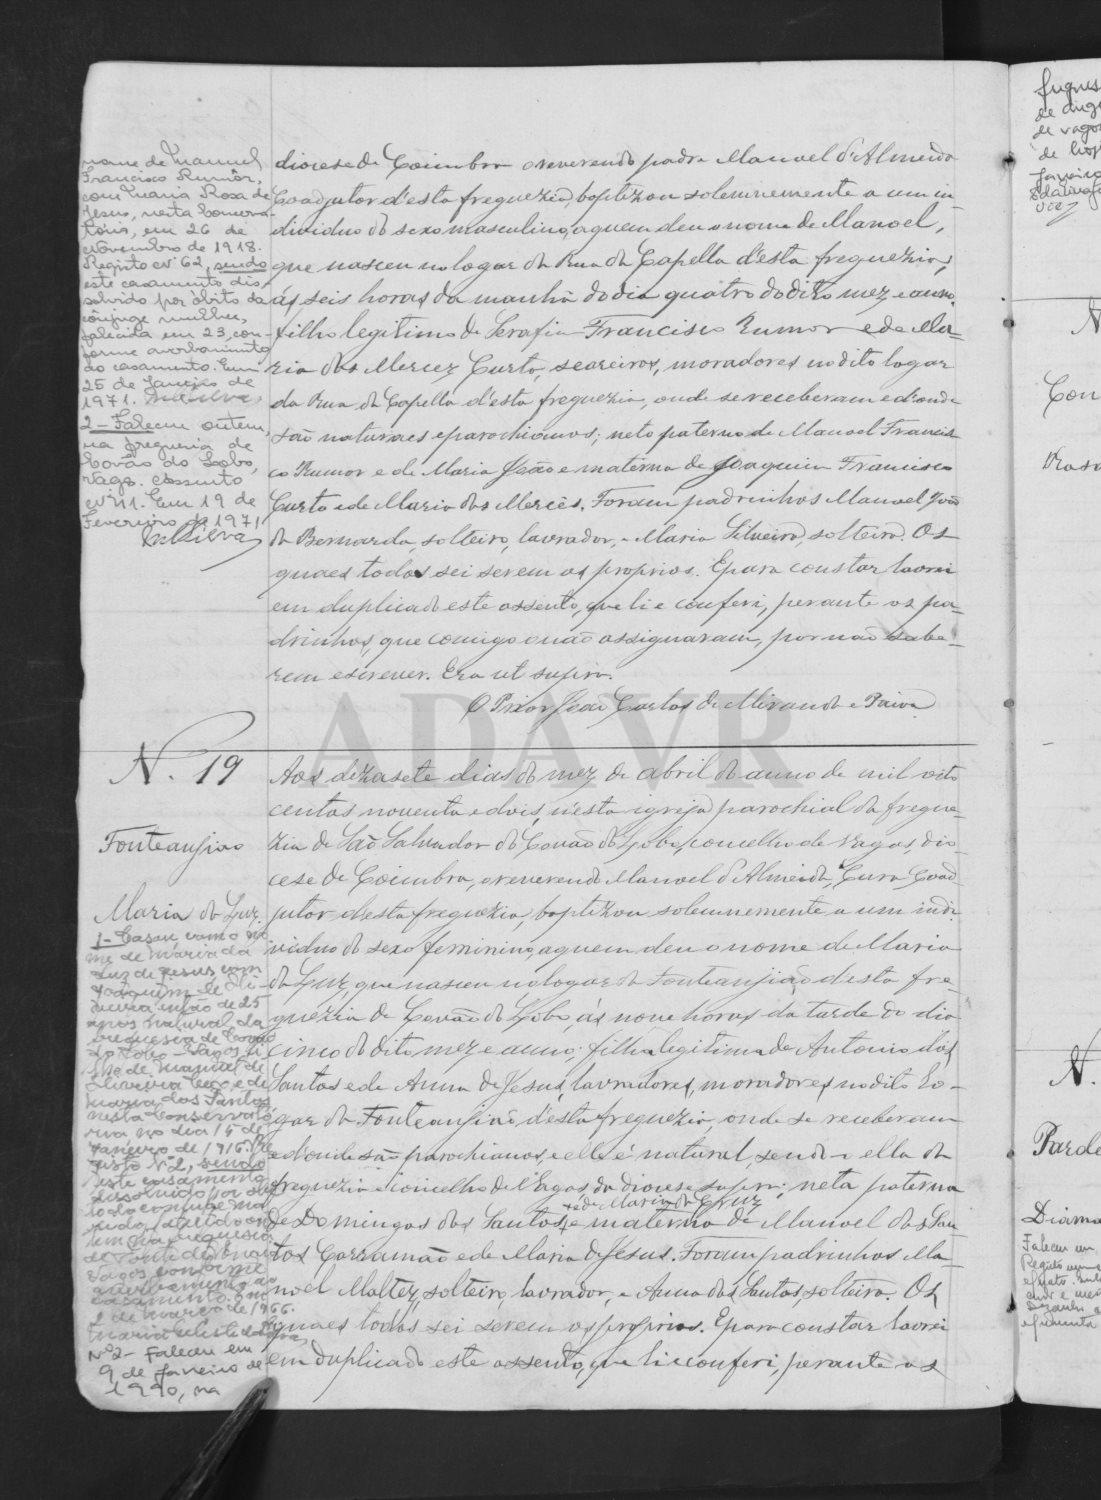 nome de Manuel
Francisco Rumôr,
com Maria Rosa de
Jesus, nesta Conserva-
tória, em 26 de
Novembro de 1918.
Registo nº 62, sendo
este casamento dis-
solvido por óbito do
cônjuge mulher,
falecida em 23, con-
forme averbamento
ao casamento. Em
25 de Janeiro de
1971. MSilva
2 - Faleceu ontem,
na freguesia de
Covão do Lobo,
Vagos. Assento
nº 11. Em 19 de
Fevereiro de 1971
MSilva
diocese de Coimbra o reverendo padre Manoel d'Almeida
Coadjutor d'esta freguezia, baptizou solemnemente a um in-
dividuo do sexo masculino, a quem deu o nome de Manoel,
que nasceu no logar da Rua da Capella d'esta freguezia,
ás seis horas da manhã do dia quatro do dito mez e anno,
filho legitimo de Serafim Francisco Rumor e de Ma-
ria das Mercez Curto, seareiros, moradores no dito logar
da Rua da Capella d'esta freguezia, onde se receberam e d'onde
são naturaes e parochianos; neto paterno de Manoel Francis-
co Rumor e de Maria João e materno de Joaquim Francisco
Curto e de Maria das Mercês. Foram padrinhos Manoel João
da Bernarda, solteiro, lavrador, e Maria Silveira, solteira. Os
quaes todos sei serem os proprios. E para constar lavrei
em duplicado este assento, que li e conferi, perante os pa-
drinhos, que comigo o não assignaram, por não sabe-
rem escrever. Era ut supra.
O Prior João Carlos de Miranda e Paiva
ADAVR
N. 19
Fonteanjião
Maria da Luz.
1 - Casou, com o no
me de Maria da
Luz de Jesus, com
Joaquim de Oli-
veira então de 25
anos natural da
freguesia de Covão
do Lobo - Vagos fi-
lho de Manuel de
Oliveira Ceco e de
Maria dos Santos
nesta Conservató-
ria no dia 15 de
Janeiro de 1916. Re-
gisto Nº 2, sendo
este casamento
dissolvido por óbi-
to do conjuge ma-
rido, falecido on-
tem na freguesia
de Ponte de Vagos
Vagos conforme
averbamento ao
casamento. Em
2 de Março de 1966.
Maria Celeste da Silva,
Nº2 - Faleceu em
9 de Janeiro de
1990, na
Aos dezasete dias do mez de abril do anno de mil oito
centos noventa e dois, n'esta igreja parochial da fregue-
zia de São Salvador do Covão do Lobo, concelho de Vagos, dio-
cese de Coimbra, o reverendo Manoel d'Almeida, Cura Coad-
jutor d'esta freguezia, baptizou solemnemente a um indi-
viduo do sexo feminino, a quem deu o nome de Maria
da Luz, que nasceu no logar da Fonteanjião d'esta fre-
guezia de Covão do Lobo, ás nove horas da tarde do dia
cinco do dito mez e anno; filha legitima de Antonio dos
Santos e de Anna de Jesus, lavradores, moradores no dito lo-
gar da Fonteanjião d'esta freguezia, onde se receberam
e d'onde são parochianos, e elle é natural, sendo-o ella da
freguezia e concelho de Vagos, da diocese supra; neta paterna
+ e de Maria da Cruz
de Domingos dos Santos + e materna de Manoel dos San
tos Carramão e de Maria de Jesus. Foram padrinhos Ma-
noel Maltez, solteiro, lavrador, e Anna dos Santos, solteira. Os
quaes todos sei serem os proprios. E para constar lavrei
em duplicado este assento, que li e conferi, perante os
de Vagos
N
Con
Rosa
N.
Parde
Diama
Faleceu em